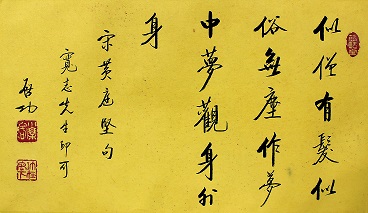 似僧有髮似
俗無塵作夢
中夢觀身外
身
宋黃庭堅句
寬志先生即可
啓功